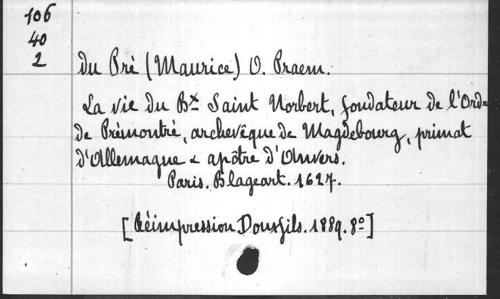 106
40
2
du Pré (Maurice) O. Praem.
La vie du Bx Saint Norbert, fondateur de l'Ordre
de Prémontré, archevêque de Magdebourg, primat
d'Allemagne & apôtre d'Anvers.
Paris. Blageart. 1627.
[Réimpression Dousfils. 1889. 8o]